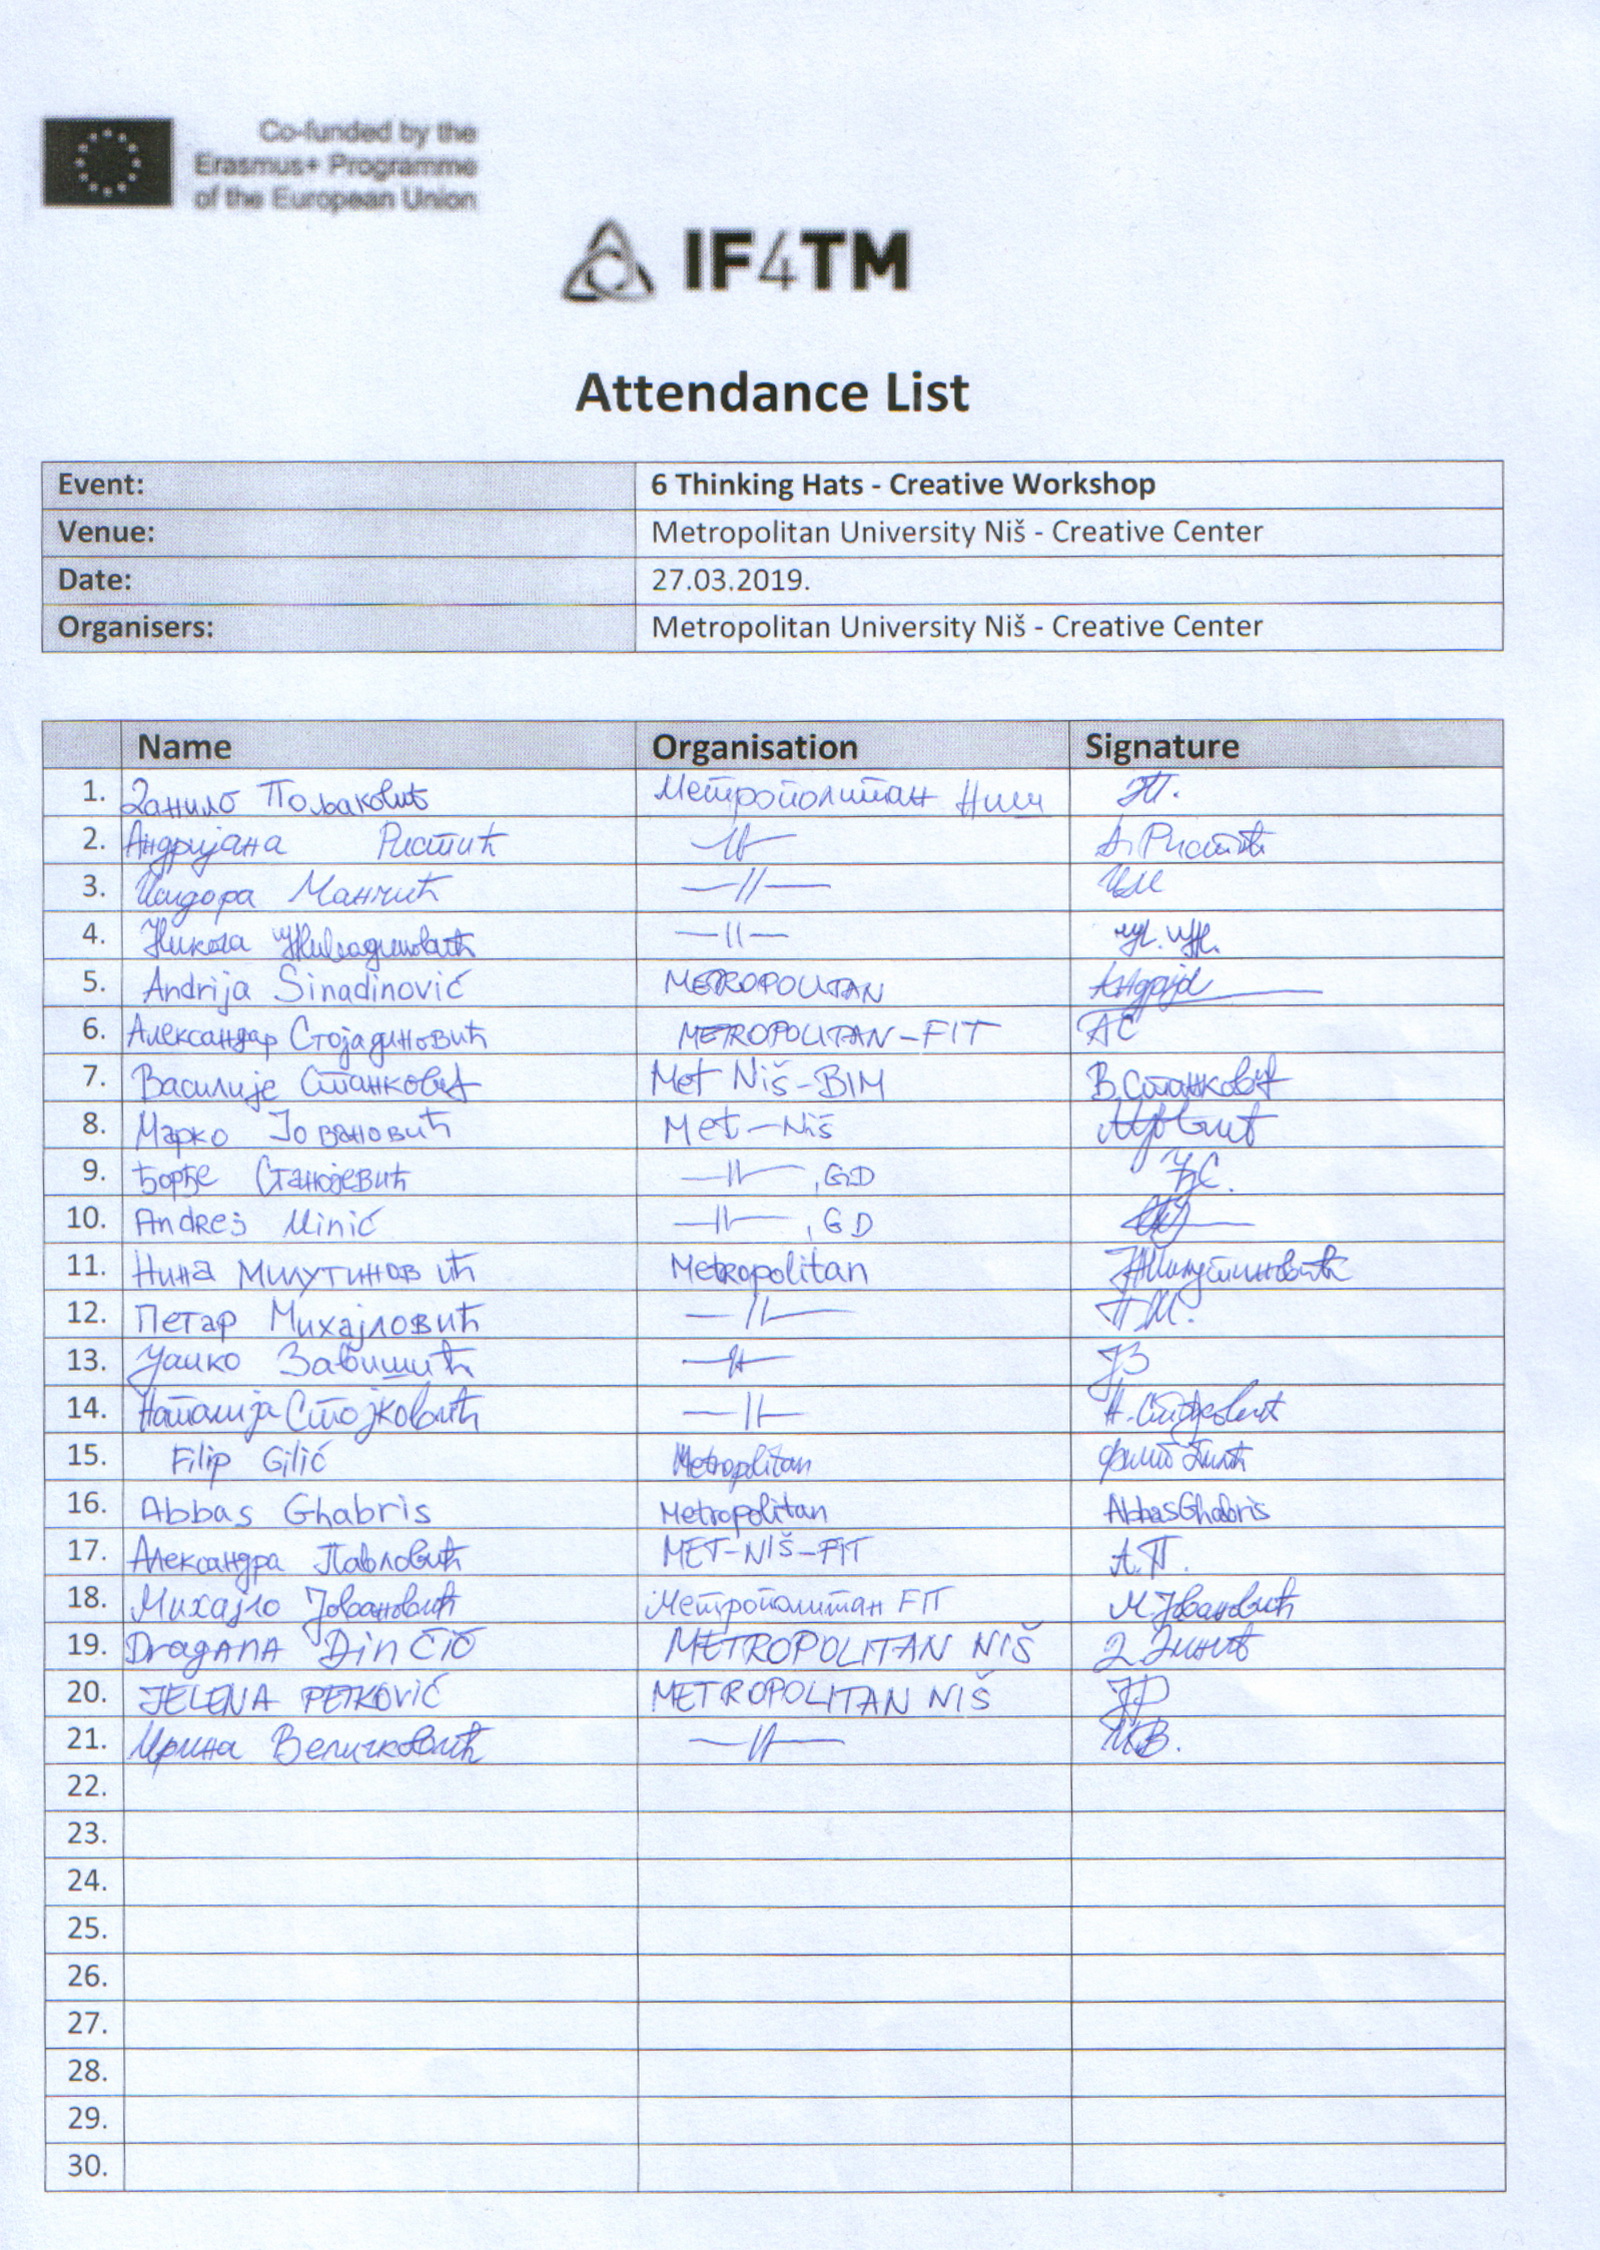 Co-funded by the
Erasmus+ Programme
of the European Union
IF4TM
Attendance List
Event: 6 Thinking Hats - Creative Workshop
Venue: Metropolitan University Niš - Creative Center
Date: 27.03.2019.
Organisers: Metropolitan University Niš - Creative Center
Name Organisation Signature
1. Данило Пољаковић Метрополитан Ниш
2. Андријана Ристић —||— А. Ристић
3. Исидора Манчић —||— ИМ
4. Никола Живадиновић —||—
5. Andrija Sinadinović METROPOLITAN Андрија
6. Александар Стојадиновић METROPOLITAN-FIT АС
7. Василије Станковић Met Niš-BIM В.Станковић
8. Марко Јовановић Met-Niš
9. Ђорђе Станојевић —||—, GD ЂС.
10. Andrej Minić —||—, GD
11. Нина Милутиновић Metropolitan НМилутиновић
12. Петар Михајловић —||— П.М.
13. Јанко Завишић —||— ЈЗ
14. Наталија Стојковић —||— Н.Стојковић
15. Filip Gilić Metropolitan Филип Гилић
16. Abbas Ghabris Metropolitan Abbas Ghabris
17. Александра Павловић MET-NIŠ-FIT А.П.
18. Михајло Јовановић Метрополитан FIT М.Јовановић
19. Dragana Dinčić METROPOLITAN NIŠ Д Динчић
20. JELENA PETKOVIĆ METROPOLITAN NIŠ ЈР
21. Ирина Величковић —||— ИВ.
22.
23.
24.
25.
26.
27.
28.
29.
30.